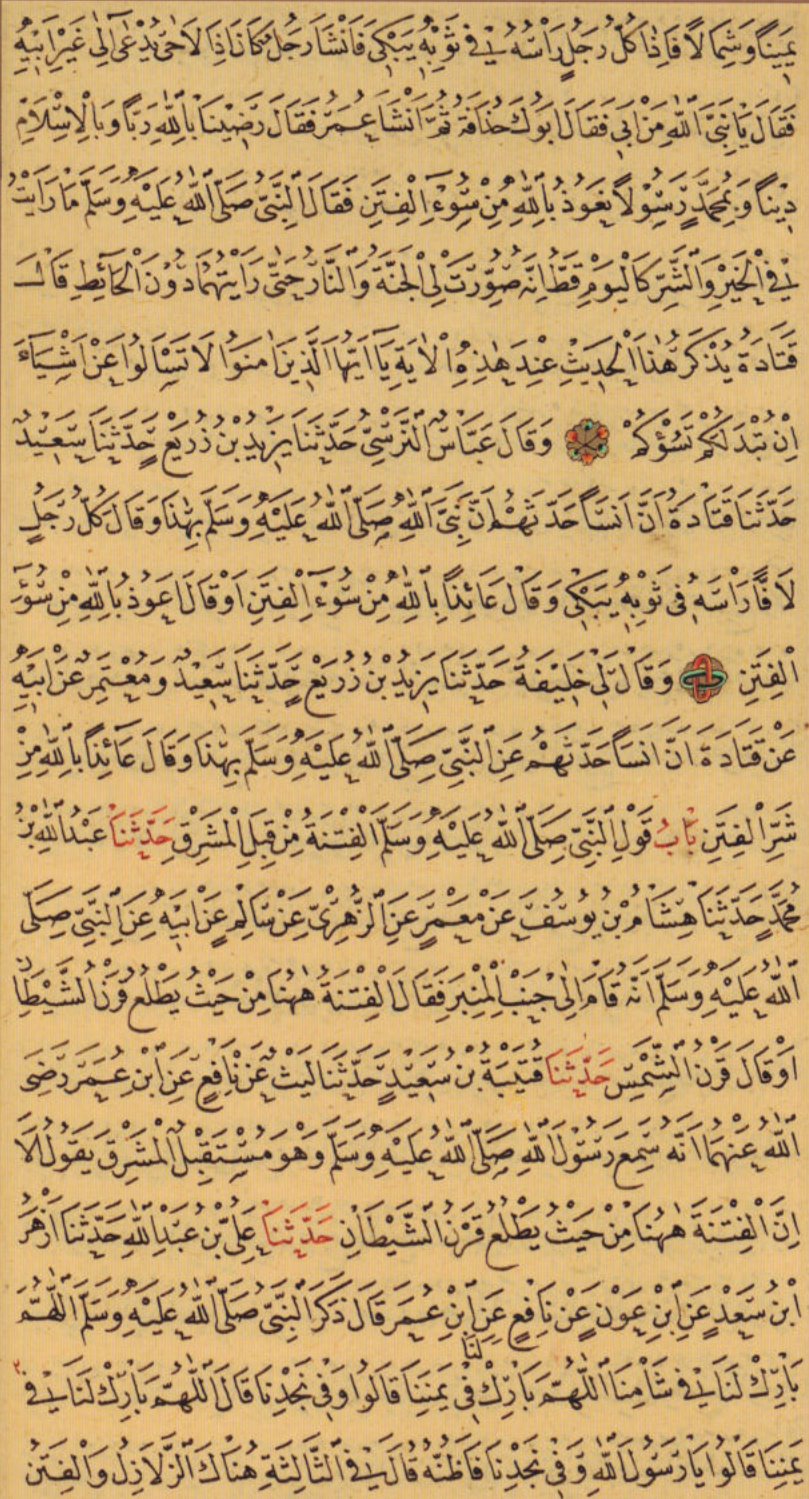 يَمِينًا وَشِمَالًا فَإِذَا كُلُّ رَجُلٍ رَأْسُهُ فِي ثَوْبِهِ يَبْكِي فَأَنْشَأَ رَجُلٌ كَانَ إِذَا لَاحَى يُدْعَى إِلَى غَيْرِ أَبِيهِ
فَقَالَ يَا نَبِيَّ اللَّهِ مَنْ أَبِي فَقَالَ أَبُوكَ حُذَافَةُ ثُمَّ أَنْشَأَ عُمَرُ فَقَالَ رَضِينَا بِاللَّهِ رَبًّا وَبِالْإِسْلَامِ
دِينًا وَبِمُحَمَّدٍ رَسُولًا نَعُوذُ بِاللَّهِ مِنْ سُوءِ الْفِتَنِ فَقَالَ النَّبِيُّ صَلَّى اللَّهُ عَلَيْهِ وَسَلَّمَ مَا رَأَيْتُ
فِي الْخَيْرِ وَالشَّرِّ كَالْيَوْمِ قَطُّ إِنَّهُ صُوِّرَتْ لِي الْجَنَّةُ وَالنَّارُ حَتَّى رَأَيْتُهُمَا دُونَ الْحَائِطِ قَالَ
قَتَادَةُ يُذْكَرُ هٰذَا الْحَدِيثُ عِنْدَ هٰذِهِ الْآيَةِ يَا أَيُّهَا الَّذِينَ اٰمَنُوا لَا تَسْأَلُوا عَنْ أَشْيَاءَ
إِنْ تُبْدَ لَكُمْ تَسُؤْكُمْ وَقَالَ عَبَّاسٌ النَّرْسِيُّ حَدَّثَنَا يَزِيدُ بْنُ زُرَيْعٍ حَدَّثَنَا سَعِيدٌ
حَدَّثَنَا قَتَادَةُ أَنَّ أَنَسًا حَدَّثَهُمْ أَنَّ نَبِيَّ اللَّهِ صَلَّى اللَّهُ عَلَيْهِ وَسَلَّمَ بِهٰذَا وَقَالَ كُلُّ رَجُلٍ
لَافًّا رَأْسَهُ فِي ثَوْبِهِ يَبْكِي وَقَالَ عَائِذًا بِاللَّهِ مِنْ سُوءِ الْفِتَنِ أَوْ قَالَ أَعُوذُ بِاللَّهِ مِنْ سُوءِ
الْفِتَنِ وَقَالَ لِي خَلِيفَةُ حَدَّثَنَا يَزِيدُ بْنُ زُرَيْعٍ حَدَّثَنَا سَعِيدٌ وَمُعْتَمِرٌ عَنْ أَبِيهِ
عَنْ قَتَادَةَ أَنَّ أَنَسًا حَدَّثَهُمْ عَنِ النَّبِيِّ صَلَّى اللَّهُ عَلَيْهِ وَسَلَّمَ بِهٰذَا وَقَالَ عَائِذًا بِاللَّهِ مِنْ
شَرِّ الْفِتَنِ بَابُ قَوْلِ النَّبِيِّ صَلَّى اللَّهُ عَلَيْهِ وَسَلَّمَ الْفِتْنَةُ مِنْ قِبَلِ الْمَشْرِقِ حَدَّثَنَا عَبْدُ اللَّهِ بْنُ
مُحَمَّدٍ حَدَّثَنَا هِشَامُ بْنُ يُوسُفَ عَنْ مَعْمَرٍ عَنِ الزُّهْرِيِّ عَنْ سَالِمٍ عَنْ أَبِيهِ عَنِ النَّبِيِّ صَلَّى
اللَّهُ عَلَيْهِ وَسَلَّمَ أَنَّهُ قَامَ إِلَى جَنْبِ الْمِنْبَرِ فَقَالَ الْفِتْنَةُ هٰهُنَا مِنْ حَيْثُ يَطْلُعُ قَرْنُ الشَّيْطَانِ
أَوْ قَالَ قَرْنُ الشَّمْسِ حَدَّثَنَا قُتَيْبَةُ بْنُ سَعِيدٍ حَدَّثَنَا لَيْثٌ عَنْ نَافِعٍ عَنِ ابْنِ عُمَرَ رَضِيَ
اللَّهُ عَنْهُمَا أَنَّهُ سَمِعَ رَسُولَ اللَّهِ صَلَّى اللَّهُ عَلَيْهِ وَسَلَّمَ وَهْوَ مُسْتَقْبِلٌ الْمَشْرِقَ يَقُولُ أَلَا
إِنَّ الْفِتْنَةَ هٰهُنَا مِنْ حَيْثُ يَطْلُعُ قَرْنُ الشَّيْطَانِ حَدَّثَنَا عَلِيُّ بْنُ عَبْدِ اللَّهِ حَدَّثَنَا أَزْهَرُ
ابْنُ سَعْدٍ عَنِ ابْنِ عَوْنٍ عَنْ نَافِعٍ عَنِ ابْنِ عُمَرَ قَالَ ذَكَرَ النَّبِيُّ صَلَّى اللَّهُ عَلَيْهِ وَسَلَّمَ اللّٰهُمَّ
بَارِكْ لَنَا فِي شَامِنَا اللّٰهُمَّ بَارِكْ لَنَا فِي يَمَنِنَا قَالُوا وَفِي نَجْدِنَا قَالَ اللّٰهُمَّ بَارِكْ لَنَا فِي
يَمَنِنَا قَالُوا يَا رَسُولَ اللَّهِ وَفِي نَجْدِنَا فَأَظُنُّهُ قَالَ فِي الثَّالِثَةِ هُنَاكَ الزَّلَازِلُ وَالْفِتَنُ